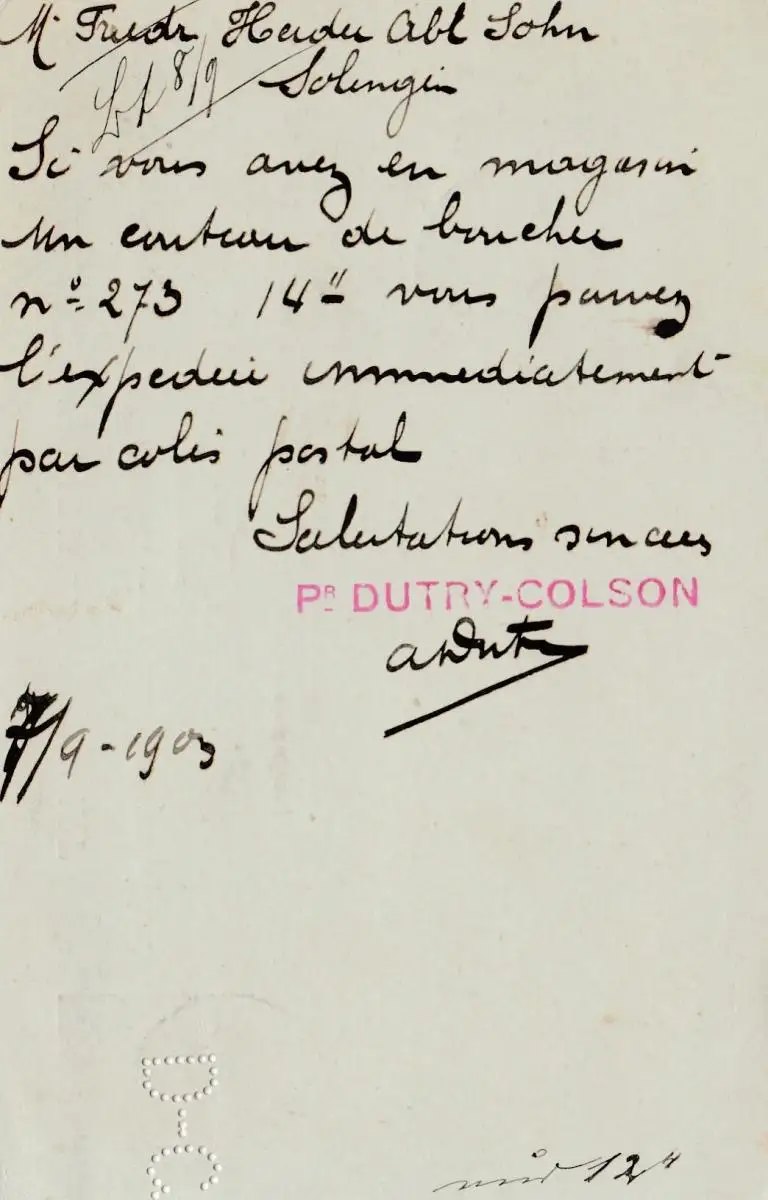 Mr Friedr Herder Abt Sohn
8/9 Solingen
Si vous avez en magasin
un couteau de boucher
nº 273 14" vous pouvez
l'expedier immediatement
par colis postal
Salutations sinceres
PR DUTRY-COLSON
7/9-1903
D-C
12"